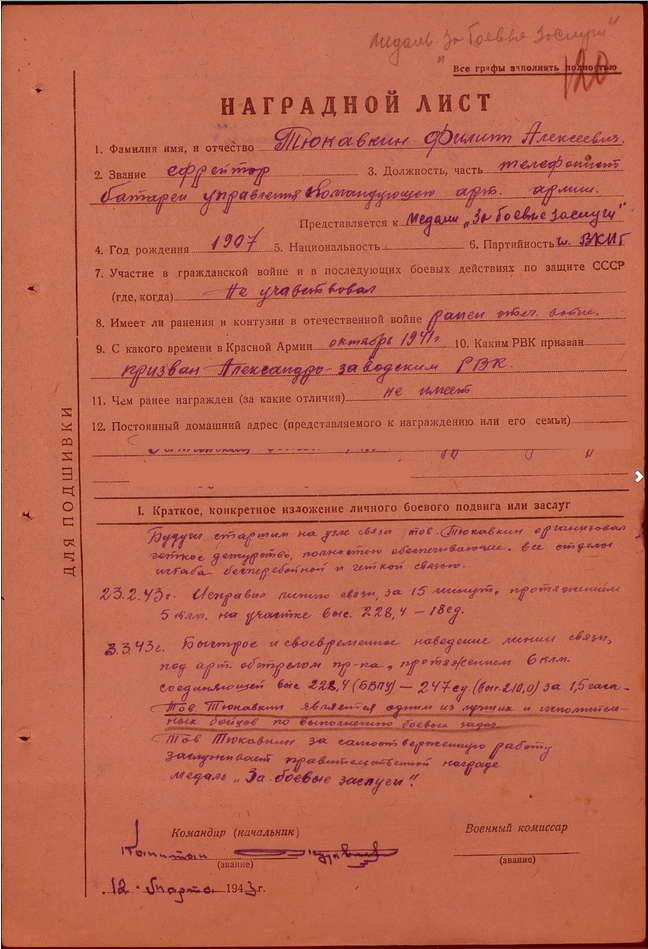 Медаль "За боевые заслуги"
Все графы заполнять полностью
120
НАГРАДНОЙ ЛИСТ
1. Фамилия имя, и отчество Тюкавкин Филипп Алексеевич.
2. Звание ефрейтор 3. Должность, часть телефонист
батареи управления Командующего арт. армии.
Представляется к медали „За боевые заслуги"
4. Год рождения 1907 5. Национальность 6. Партийность чл. ВКПб
7. Участие в гражданской войне и в последующих боевых действиях по защите СССР
(где, когда) Не участвовал
8. Имеет ли ранения и контузии в отечественной войне ранен отеч. войне.
9. С какого времени в Красной Армии октябрь 1941г. 10. Каким РВК призван
призван Александро-заводским РВК.
11. Чем ранее награжден (за какие отличия) не имеет
12. Постоянный домашний адрес (представляемого к награждению или его семьи)
ДЛЯ ПОДШИВКИ
I. Краткое, конкретное изложение личного боевого подвига или заслуг
Будучи старшим на узле связи тов. Тюкавкин организовал
четкое дежурство, полностью обеспечивающее все отделы
штаба бесперебойной и четкой связью.
23.2.43г. Исправил линию связи, за 15 минут, протяжением
5 клм. на участке выс. 228,4 – 18ед.
3.3.43г. Быстрое и своевременное наведение линии связи,
под арт. обстрелом пр-ка, протяжением 6 клм.
соединяющей выс 228,4 (БВПУ) – 247ед (выс. 210,0) за 1,5 часа.
Тов Тюкавкин является одним из лучших и исполнитель-
ных бойцов по выполнению боевых задач.
Тов Тюкавкин за самоотверженную работу
заслуживает правительственной награде
медаль „За боевые заслуги".
Командир (начальник) Военный комиссар
Капитан
(звание) (звание)
12 Марта 1943г.